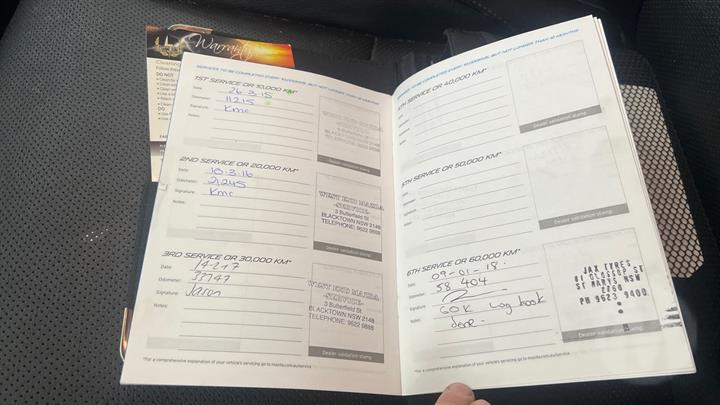 Warranty
DO NOT
SERVICES TO BE COMPLETED EVERY 10,000KM, BUT NOT LONGER THAN 12 MONTHS
1ST SERVICE OR 10,000 KM*
Date: 26.3.15
Odometer: 11215
Signature: Kmc
Notes:
Dealer validation stamp
2ND SERVICE OR 20,000 KM*
Date: 10.3.16
Odometer: 21245
Signature: Kmc
Notes:
WEST END MAZDA
-SERVICE-
3 Butterfield St
BLACKTOWN NSW 2148
TELEPHONE: 9622 9888
Dealer validation stamp
3RD SERVICE OR 30,000 KM*
Date: 14-2-17
Odometer: 33747
Signature: Jaron
Notes:
WEST END MAZDA
-SERVICE-
3 Butterfield St
BLACKTOWN NSW 2148
TELEPHONE: 9622 9888
Dealer validation stamp
*For a comprehensive explanation of your vehicle's servicing go to mazda.com.au/service
4TH SERVICE OR 40,000 KM*
Dealer validation stamp
5TH SERVICE OR 50,000 KM*
Dealer validation stamp
6TH SERVICE OR 60,000 KM*
Date: 09-01-18.
Odometer: 58 404
Signature:
Notes: 60K Log book
done.
JAX TYRES
81 GLOSSOP ST
ST MARYS NSW
2760
PH 9623 9400
Dealer validation stamp
*For a comprehensive explanation of your vehicle's servicing go to mazda.com.au/service